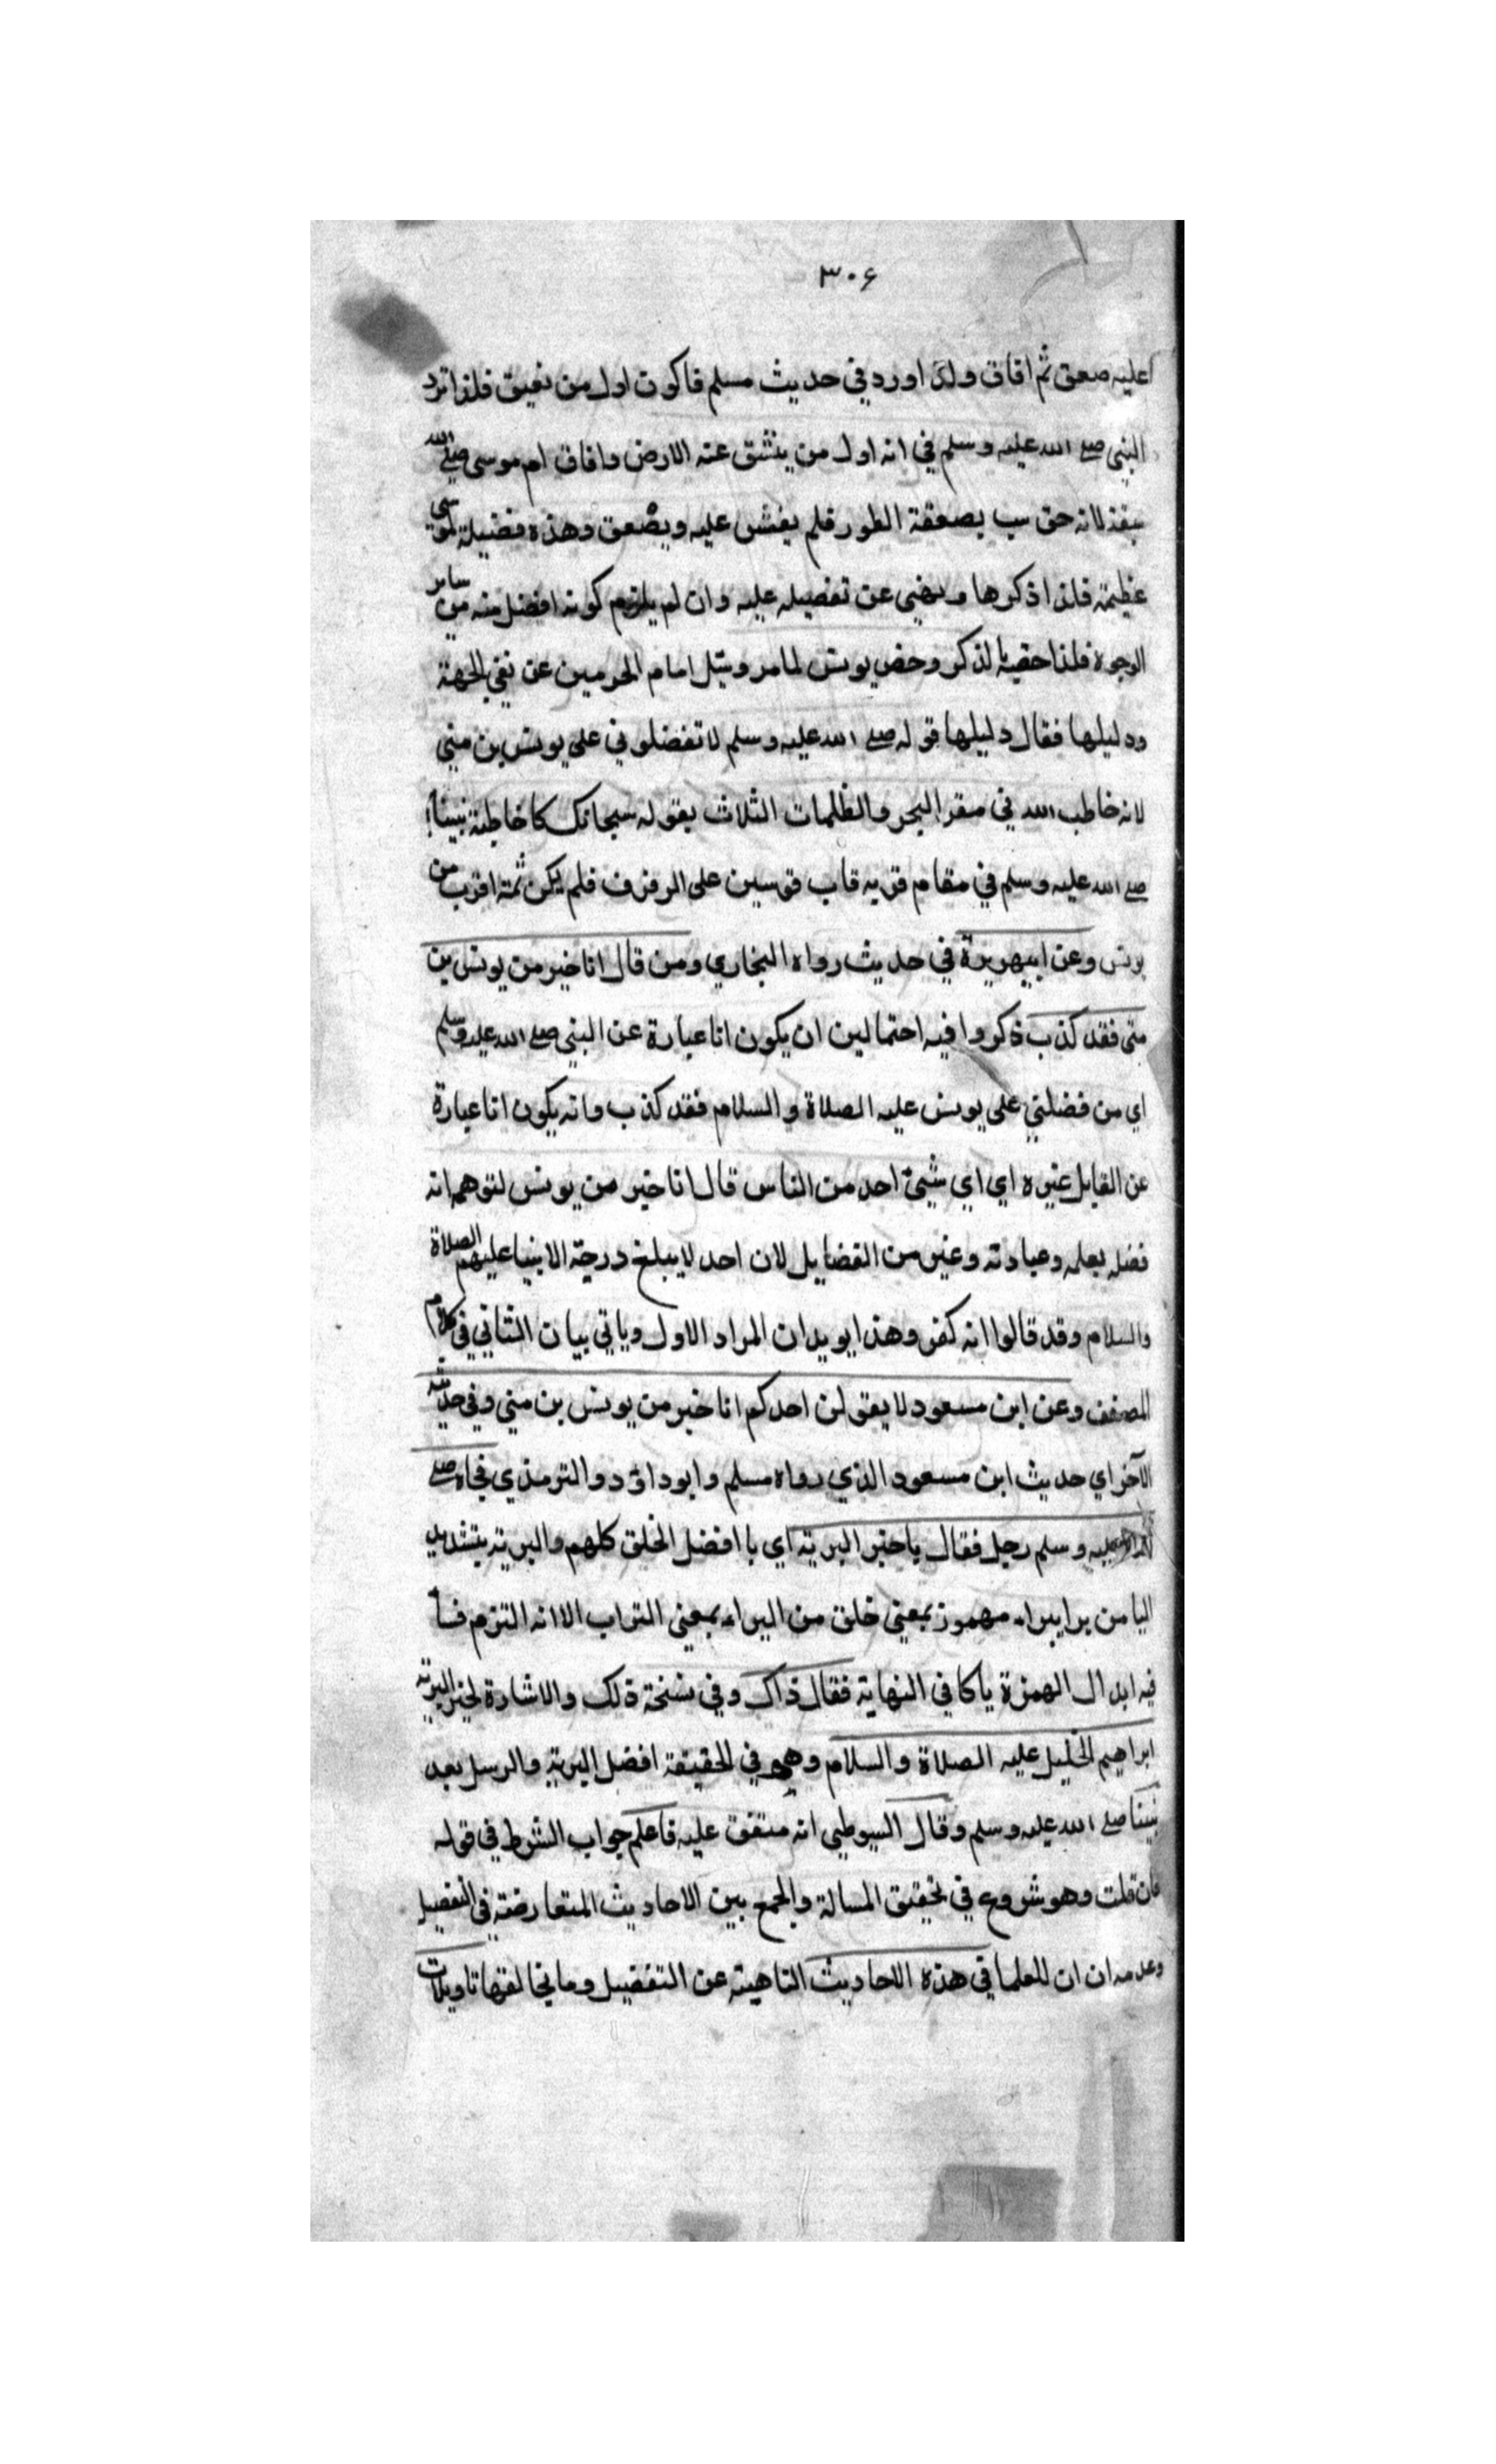 ٣٠۶
عليه صعق ثم افاق ولذا ورد في حديث مسلم فاكون اول من نفيق فلذا تردد
النبي صلے الله عليه وسلم في انه اول من ينشق عنه الارض وافاق ام موسى صلے الله
سبقه لانه حوسب بصعقة الطور فلم يغش عليه ويصعق وهذه فضيلة لموسى
عظيمة فلذا ذكرها ونهي عن تفضيله عليه وان لم يلزم كونه افضل منه من ساير
الوجوه فلذا خصه بالذكر وخص يونس لما مر وسئل امام الحرمين عن نفي الجهة
ودليلها فقال دليلها قوله صلے الله عليه وسلم لا تفضلوني على يونس بن متي
لانه خاطب الله في مقر البحر والظلمات الثلاث بقوله سبحانك كما خاطبه نبينا
صلے الله عليه وسلم في مقام قربه قاب قوسين على الرفرف فلم يكن ثمة اقرب من
يونس وعن ابيهريرة في حديث رواه البخاري ومن قال انا خير من يونس بن
متى فقد كذب ذكروا فيه احتمالين ان يكون انا عبارة عن النبي صلے الله عليه وسلم
اي من فضلني على يونس عليه الصلاة والسلام فقد كذب وانه يكون انا عبارة
عن القايل غيره اي اي شيئ احد من الناس قال انا خير من يونس لتوهم انه
فضله بعلمه وعبادته وغير من الفضايل لان احد لا يبلغ درجة الانبيا عليهم الصلاة
والسلام وقد قالوا انه كفر وهذا يويد ان المراد الاول وياتي بيان الثاني في كلام
المصنف وعن ابن مسعود لا يقولن احدكم انا خير من يونس بن متي وفي حديثه
الآخر اي حديث ابن مسعود الذي رواه مسلم وابو داؤد والترمذي فجاه صلے
الله عليه وسلم رجل فقال يا خير البرية اي يا افضل الخلق كلهم والبرية بتشديد
اليا من برا يبراء مهموز بمعني خلق من البراء بمعني التراب الا انه التزم فيه
فيه ابدال الهمزة يا كما في النهاية فقال ذاك وفي نسخة ذلك والاشارة لخير البرية
ابراهيم الخليل عليه الصلاة والسلام وهو في الحقيقة افضل البرية والرسل بعد
نبينا صلے الله عليه وسلم وقال السيوطي انه متفق عليه فاعلم جواب الشرط في قوله
فان قلت وهو شروع في تحقيق المسالة والجمع بين الاحاديث المتعارضة في التفضيل
وعدمه ان ان للعلما في هذه الاحاديث الناهية عن التفضيل وما يخالفها تاويلات